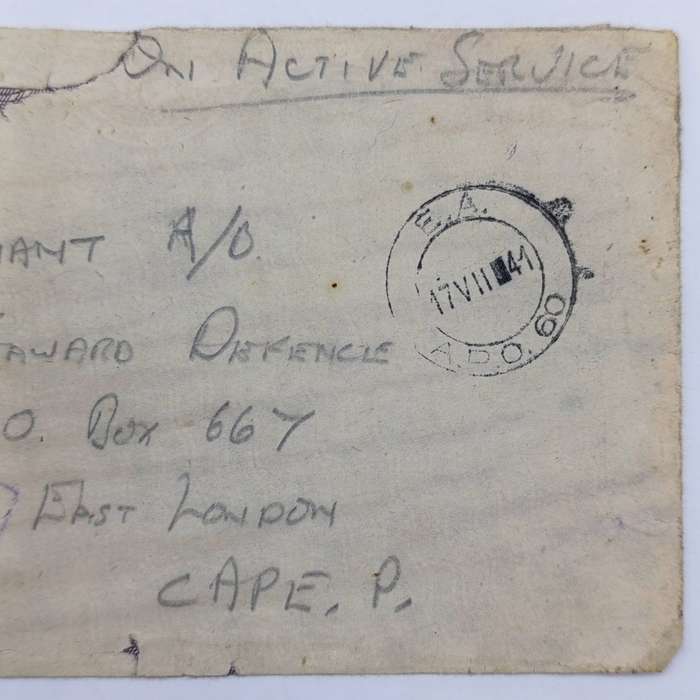 On Active Service
E.A.
17 VII 41
A.P.O. 60
A/O
Defence
O. Box 667
East London
Cape. P.